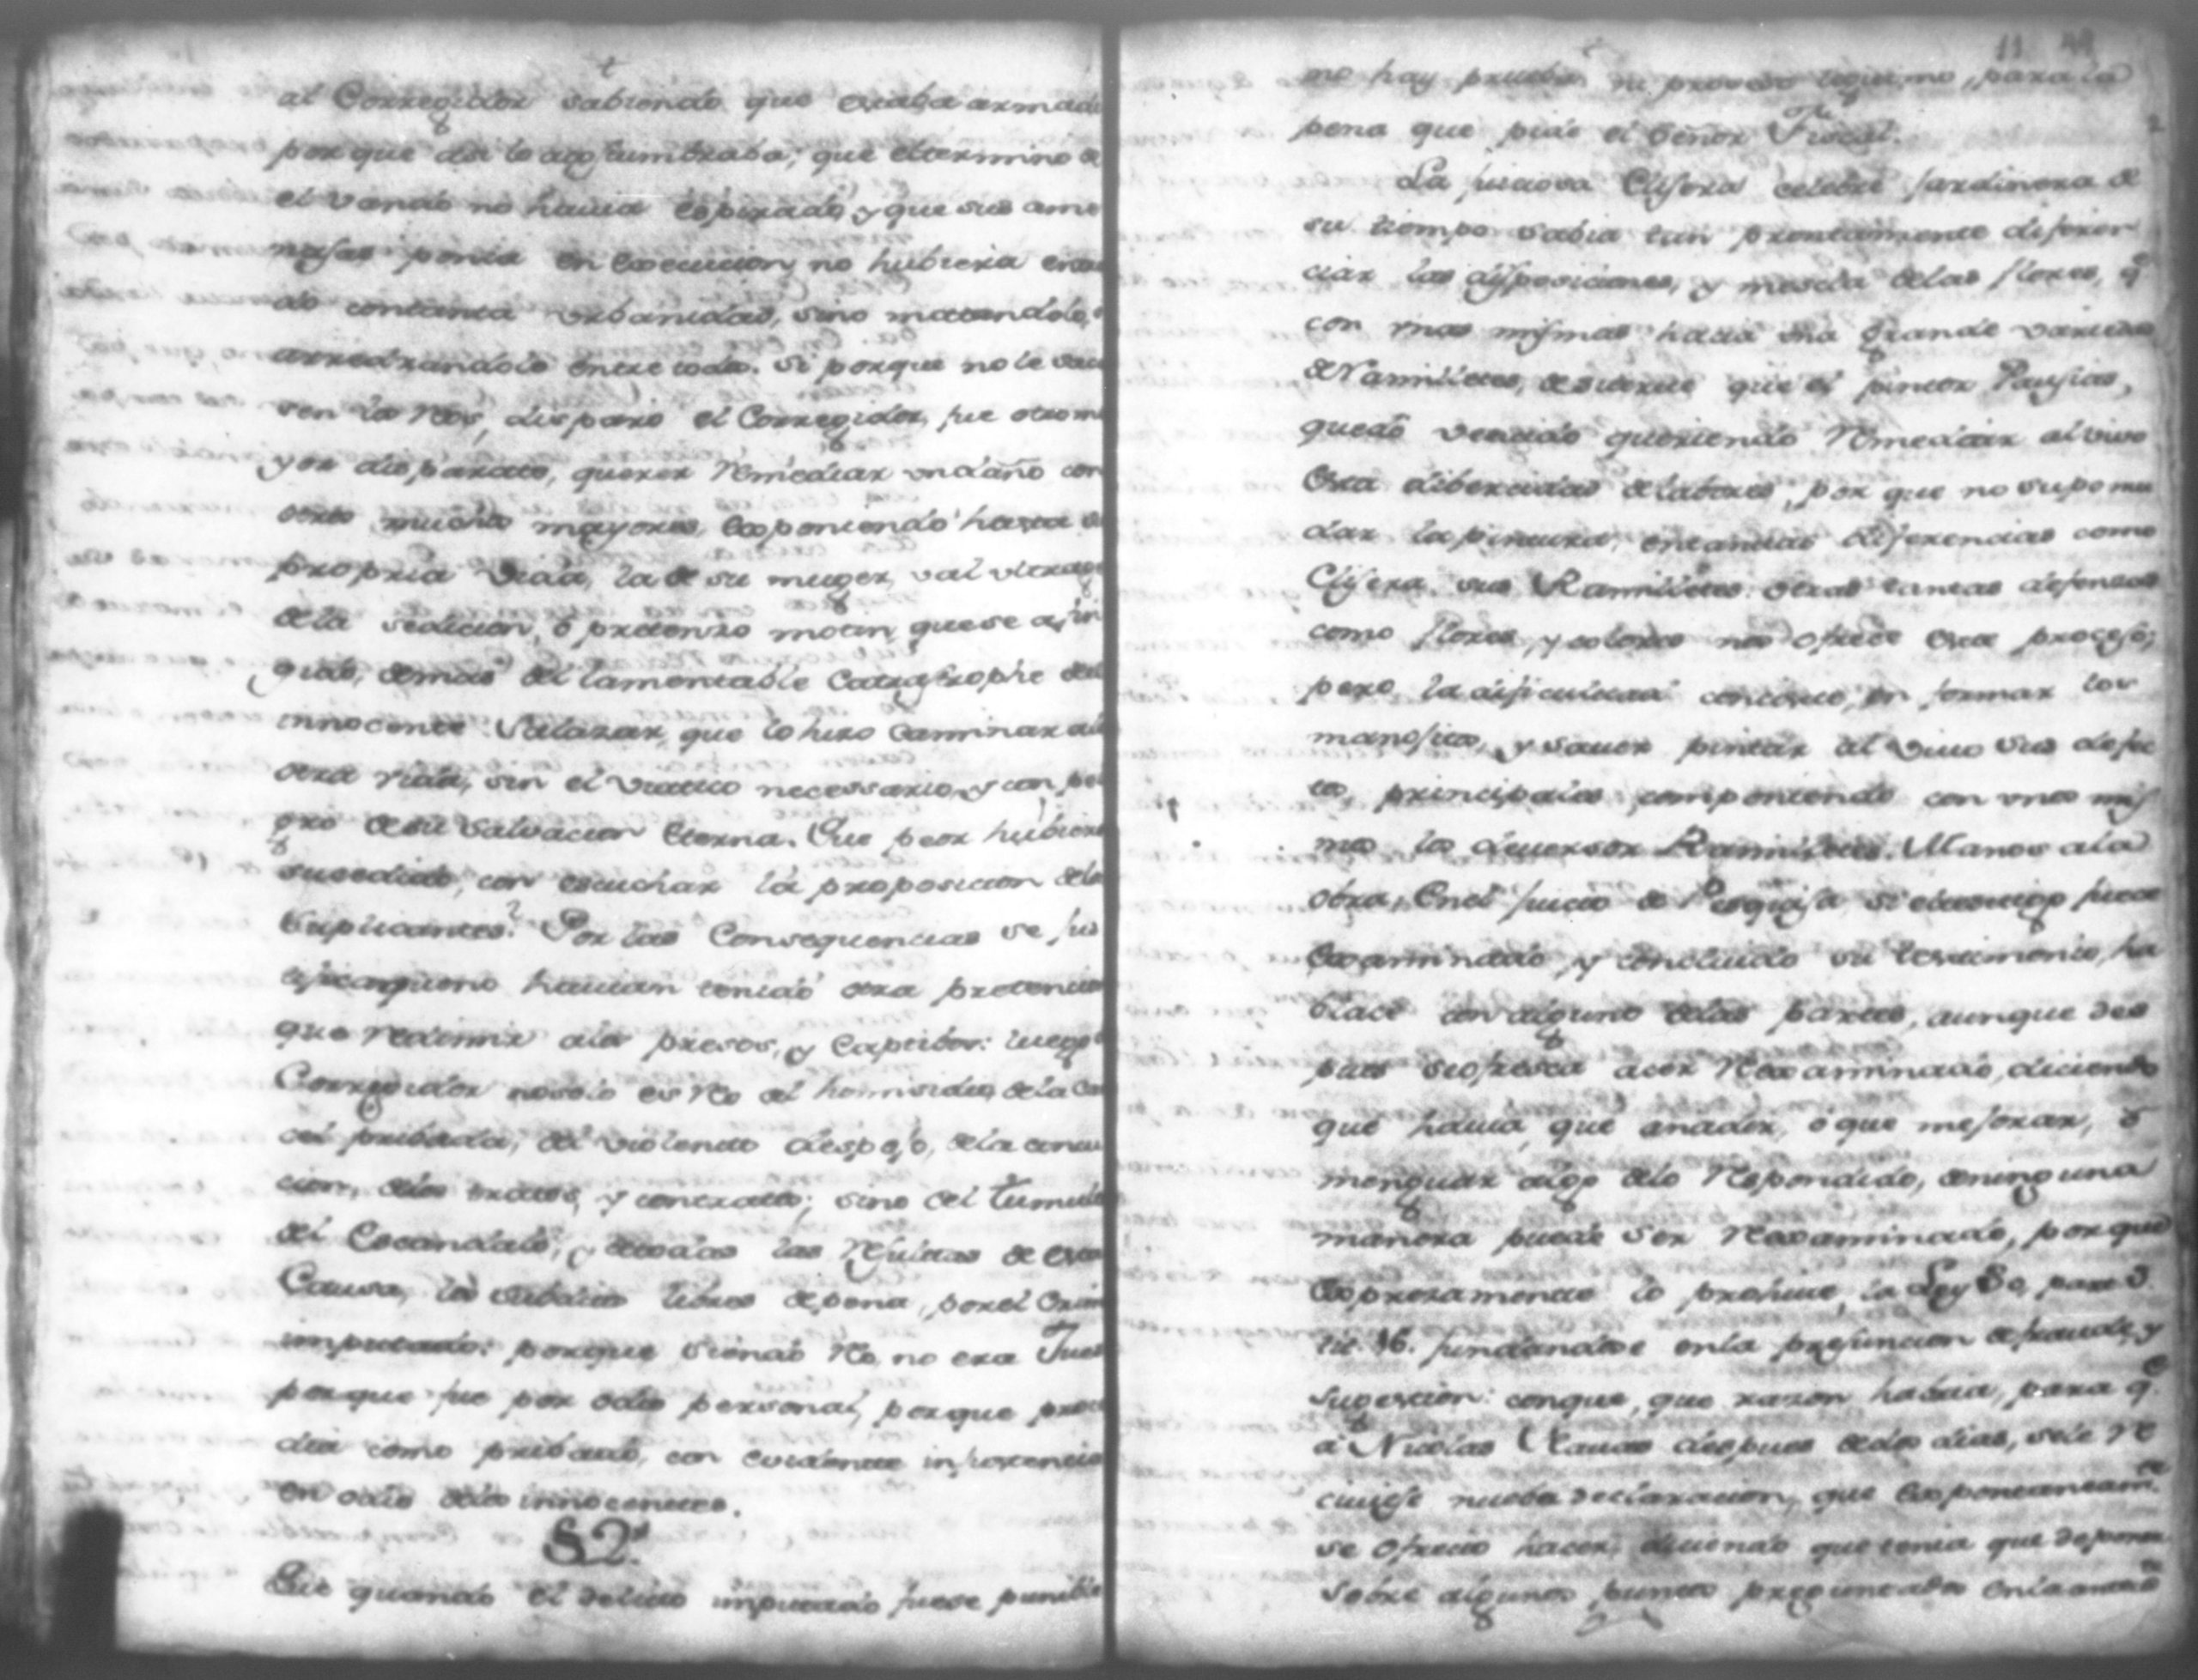 al Corregidor sabiendo que estaba armado
porque asi lo acostumbraba; que el termino de
el vando no havia espirado, y que sus ame
nasas ponia en execucion, no hubiera entra
do contanta urbanidad, sino matandolo,
arredrandolo entre todos. Si porque no le saca
sen los Reos, disparo el Corregidor, fue otro ma
yor disparate, querer Remediar un daño con
otros muchos mayores, exponiendo hasta su
propria vida, la de su muger, y al ultrage
dela sedicion, ó pretenso motin, que se a fin
gido, demas del lamentable Catastrophe del
innocente Salazar, que lo hizo caminar ala
otra vida, sin el viatico necessario, y con peli
gro de su salvacion Eterna. Que peor hubiera
sucedido, con escuchar la proposicion delos
Suplicantes? Por las Consequencias se jus
tifica, que no havian tenido otra pretencion
que Redimir alos presos, y Captibos: luego el
Corregidor no solo es Reo del homisidio, dela Car
cel pribada, del violento despojo, dela concu
cion, delos tratos, y contratos; sino del tumulto
del Escandalo, y detodas las Resultas de esta
Causa, los subditos libres depena, por el Crimen
imputado: porque siendo Reo, no era Jues
porque fue por odio personal, porque proce
dia como pribado, con evidente injusticia
en odio delos innocentes.
§2.
Que quando el delito imputado fuese punible
11
no hay prueba, ni proceso legitimo, para la
pena que pide el Señor Fiscal.
La juiciosa Clisera celebre Jardinera de
su tiempo sabia tan prontamente diferen
ciar las disposiciones, y mescla delas flores, q.e
con unas mismas hacia una grande variedad
de Ramilletes, de suerte que el pintor Pausias,
quedó vencido queriendo Remedar al vivo
esta diversidad delabores, por que no supo mu
dar la pintura, entantas diferencias como
Clisera sus Ramilletes. Otras tantas defensas
como flores, y colores nos ofrece este proceso;
pero la dificultad consiste, en formar los
manojitos, y saver pintar al vivo sus defec
tos, principales componiendo con unos mis
mos los diversos Ramilletes. Manos ala
obra, En el Juicio de Pesquisa si el testigo fuere
examinado, y concluido su testimonio, ha
blace con alguno delas partes, aunque des
pues se ofresca aser Reexaminado, diciendo
que havia, que anader, ó que mejorar, ó
menguar algo delo Respondido, deninguna
manera puede ser Reexaminado, porque
expresamente lo prohive, la Ley 30, part. 3.
tit. 16. fundandose en la presuncion defraude, y
sugestion: conque, que razon habria, para q.e
á Nicolas Navas despues dedos dias, sele Re
civiese nueba declaracion, que expontaneam.te
se ofrecio hacer, diciendo que tenia que deponer
sobre algunos puntos preguntados en la ante